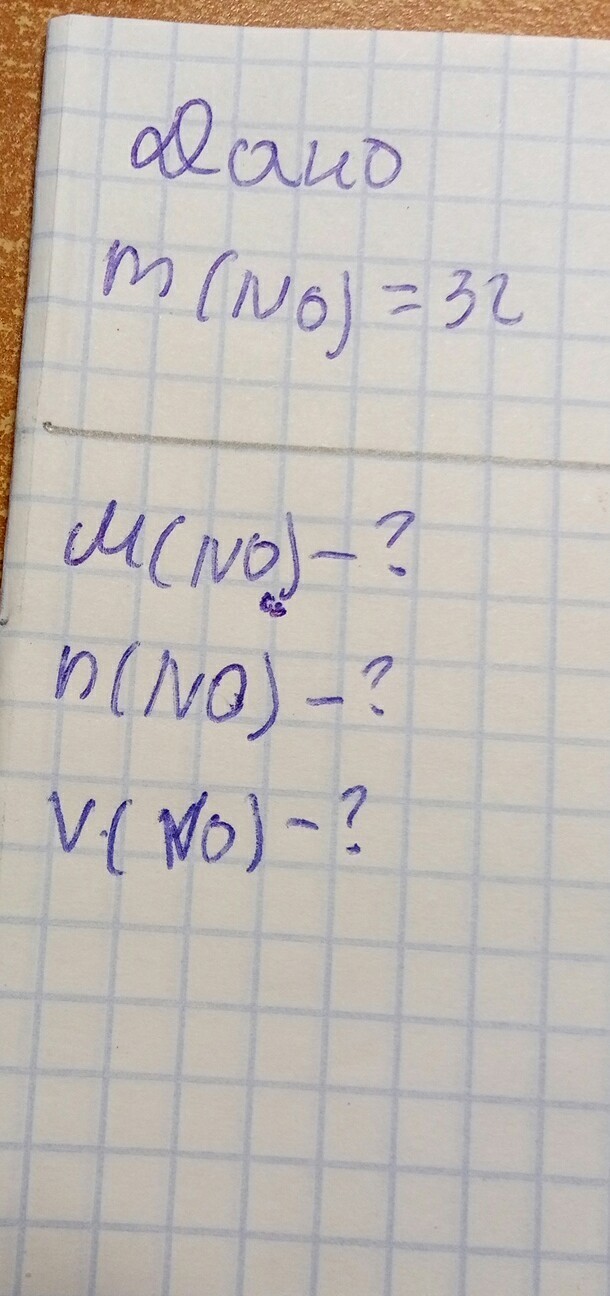 Дано
m(NO)=3г
M(NO)-?
n(NO)-?
V(NO)-?